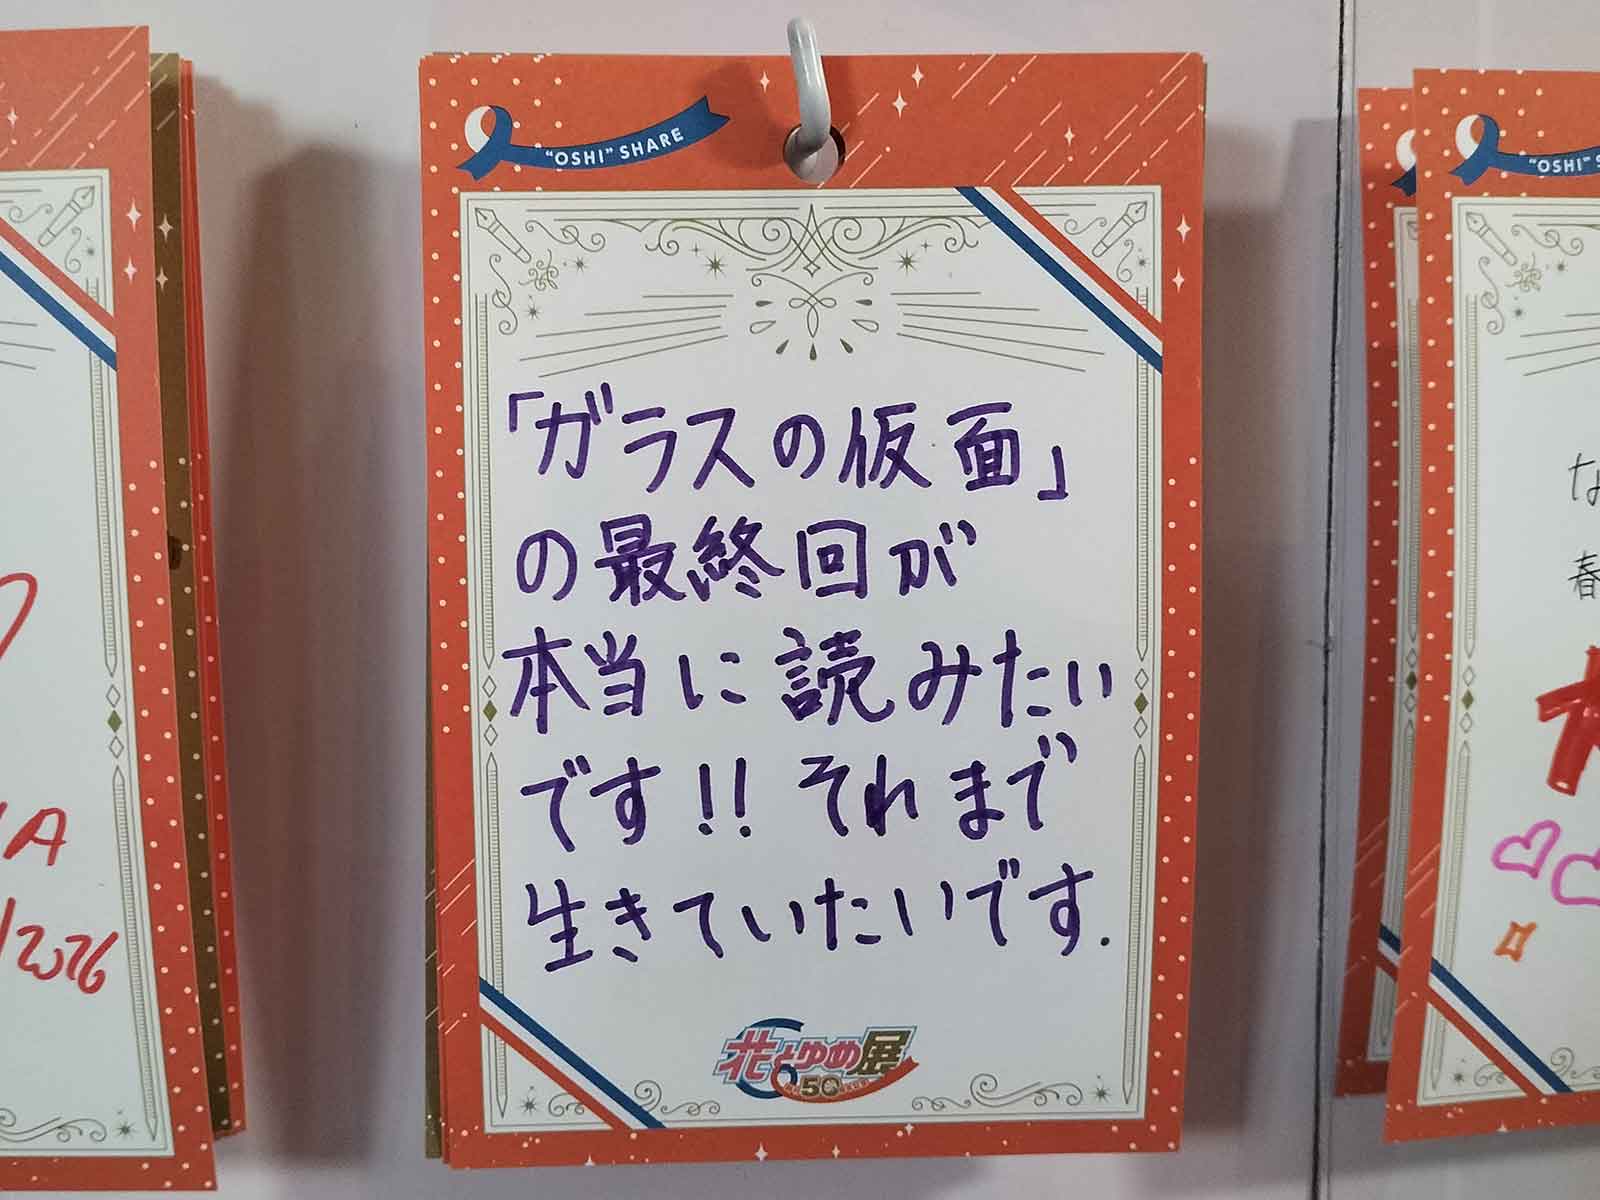 "OSHI" SHARE
「ガラスの仮面」
の最終回が
本当に読みたい
です!! それまで
生きていたいです.
花とゆめ展
50
"OSHI" S
な
春
IA
/2026